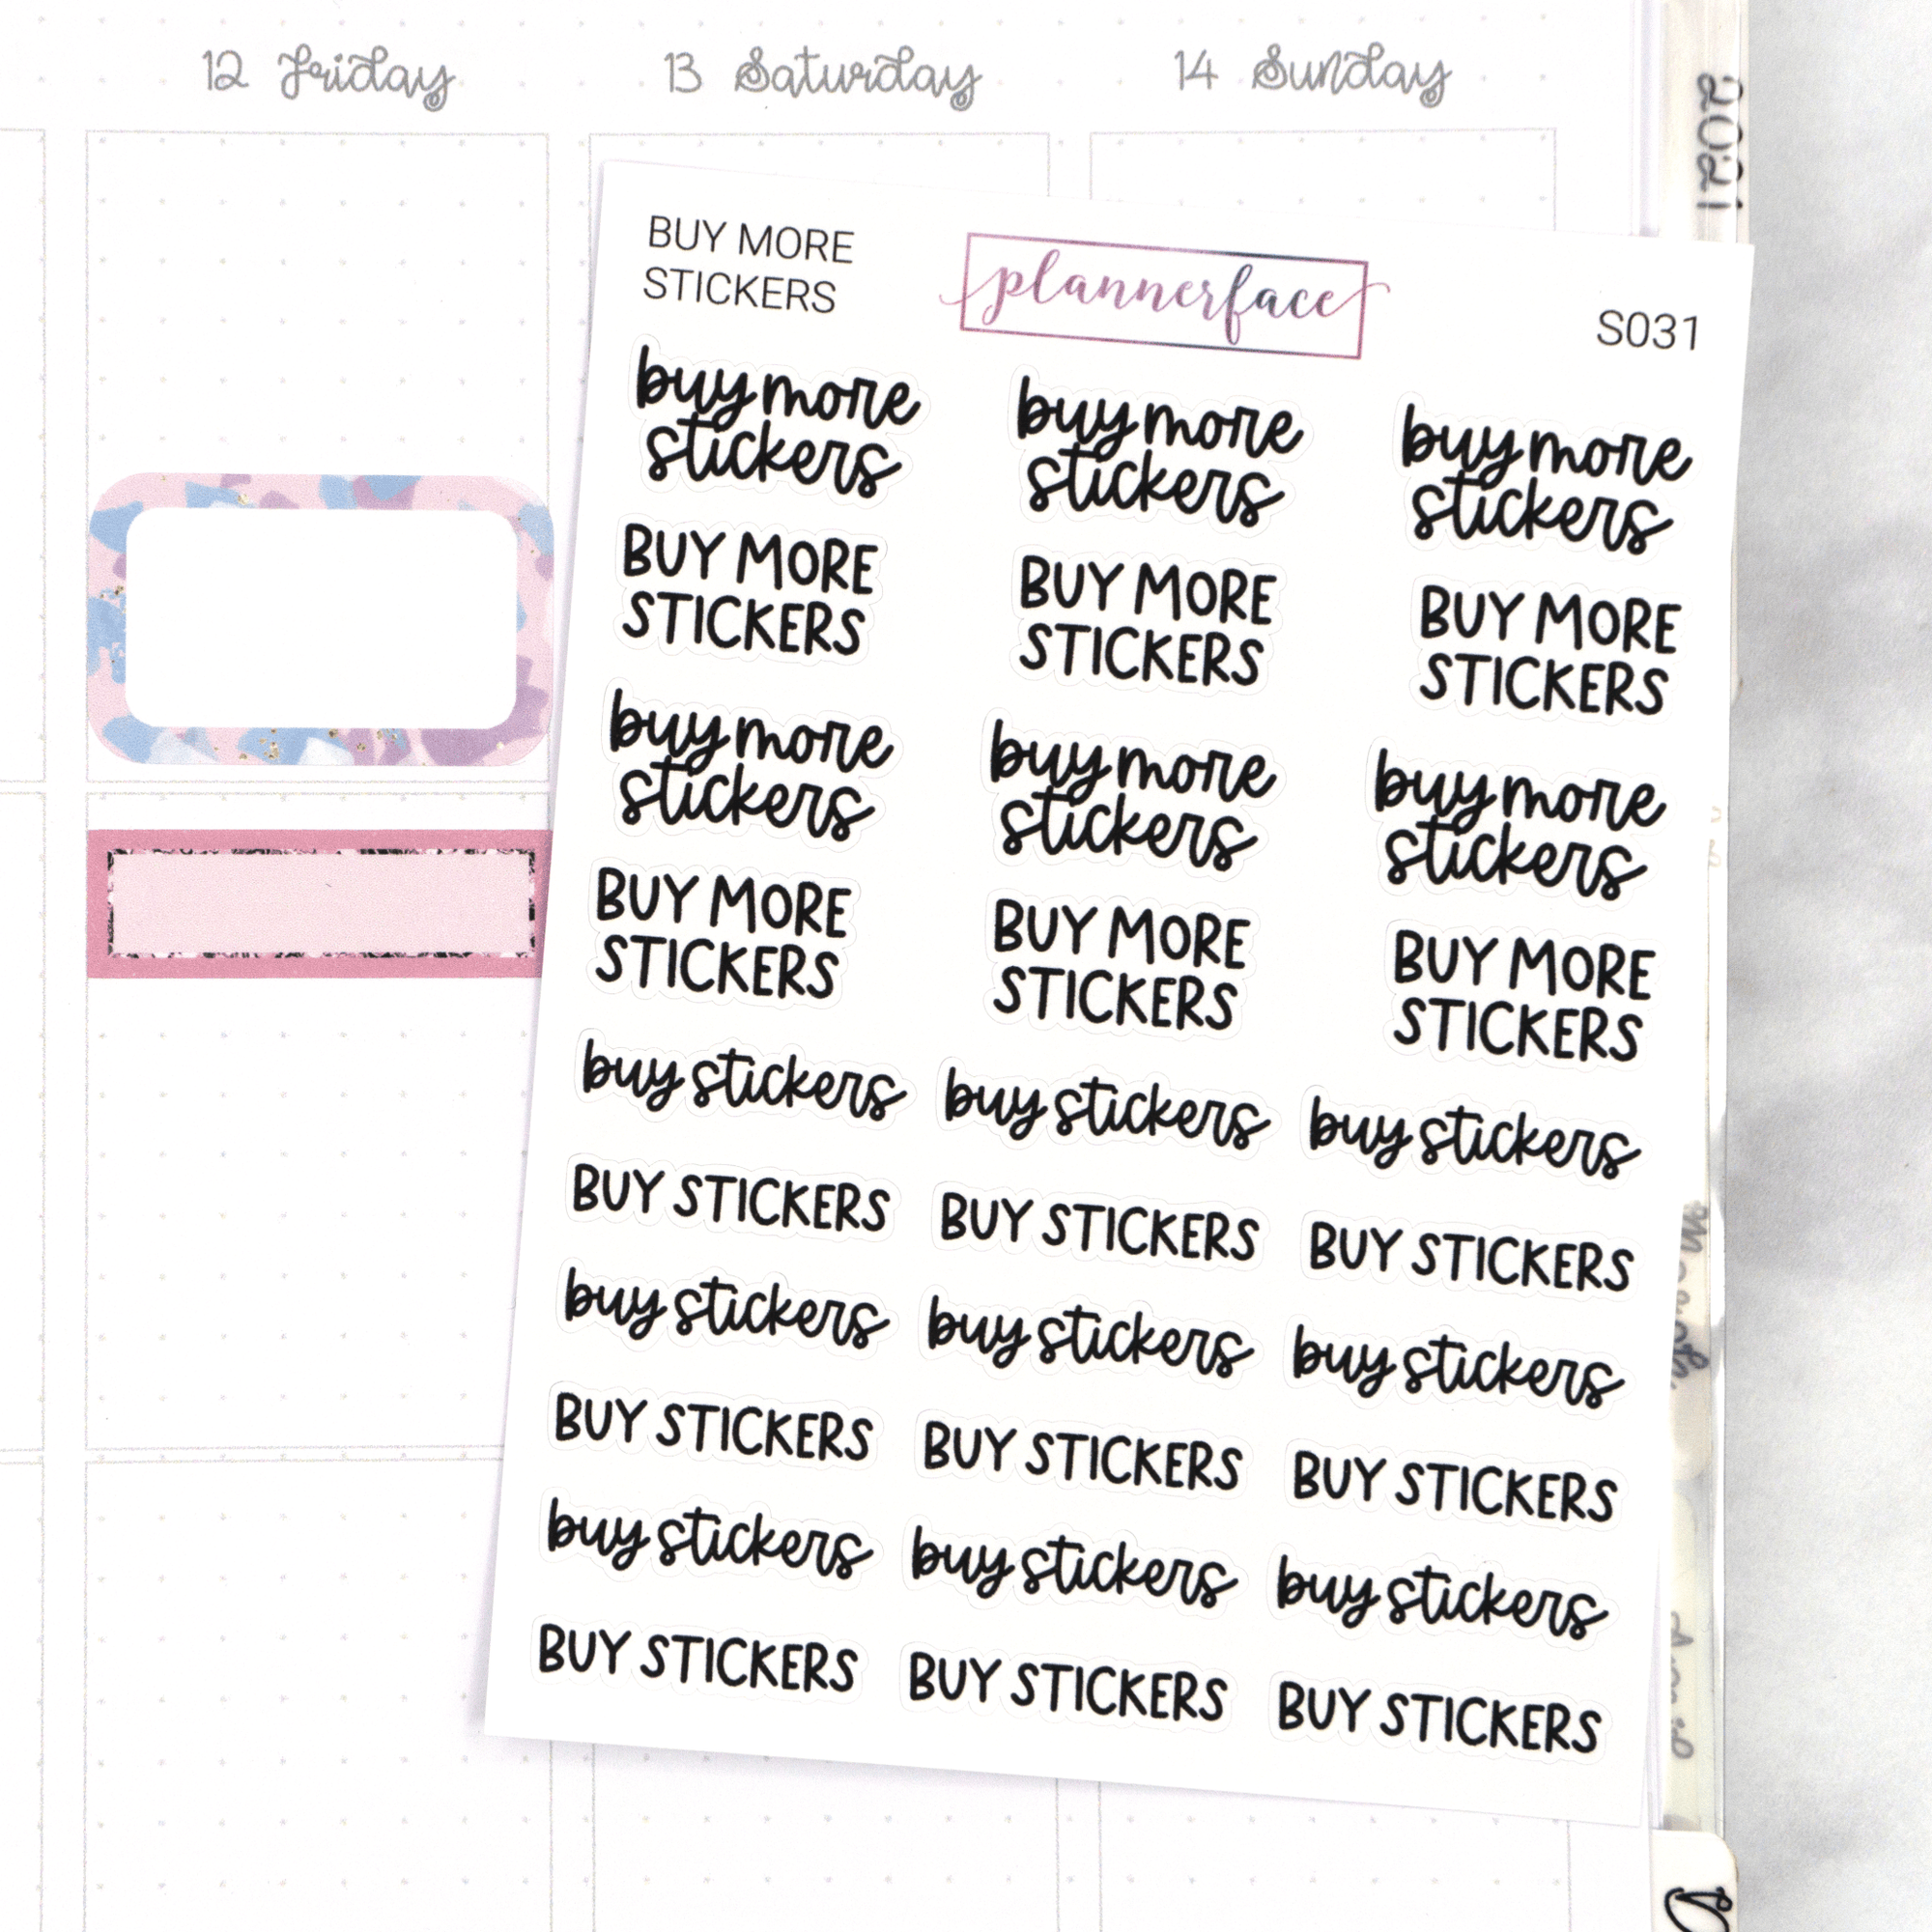 12 Friday
13 Saturday
14 Sunday
2021
BUY MORE
STICKERS
plannerface
S031
buy more
stickers
buy more
stickers
buy more
stickers
BUY MORE
STICKERS
BUY MORE
STICKERS
BUY MORE
STICKERS
buy more
stickers
buy more
stickers
buy more
stickers
BUY MORE
STICKERS
BUY MORE
STICKERS
BUY MORE
STICKERS
buy stickers
buy stickers
buy stickers
BUY STICKERS
BUY STICKERS
BUY STICKERS
buy stickers
buy stickers
buy stickers
BUY STICKERS
BUY STICKERS
BUY STICKERS
buy stickers
buy stickers
buy stickers
BUY STICKERS
BUY STICKERS
BUY STICKERS